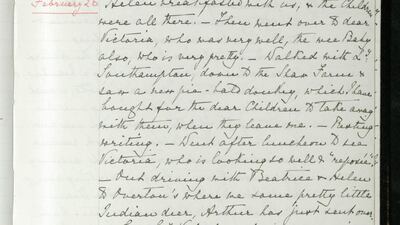 February 26
Helen breakfasted with us, & the Children
were all there. – Then went over to dear
Victoria, who was very well, the wee Baby
also, who is very pretty. – Walked with Ly
Southampton, down to the Shaw Farm &
saw a new donkey, which I have
bought for the dear Children to take away
with them, when they leave me. – Resting
writing. – Went after luncheon to see
Victoria, who is looking so well & "reposée".
– Out driving with Beatrice & Helen
to Overton's where we saw some pretty little
Indian deer, Arthur has just sent over